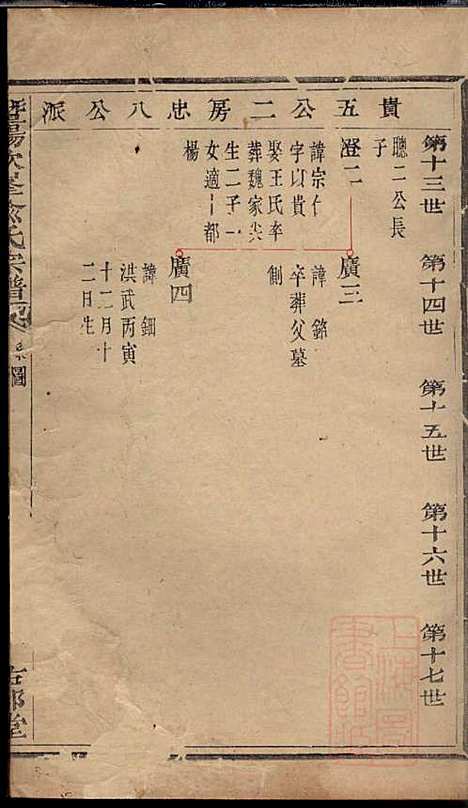 貴五公二房忠八公派
第十三世
第十四世
第十五世
第十六世
第十七世
聰二公長
子
澄二
諱宗仁
字以貴
娶王氏卒
葬魏家尖
生二子一
女適十都
楊
廣三
諱銘
卒葬父墓
側
廣四
諱鈿
洪武丙寅
十二月十
二日生
暨陽次峯俞氏宗譜
系圖